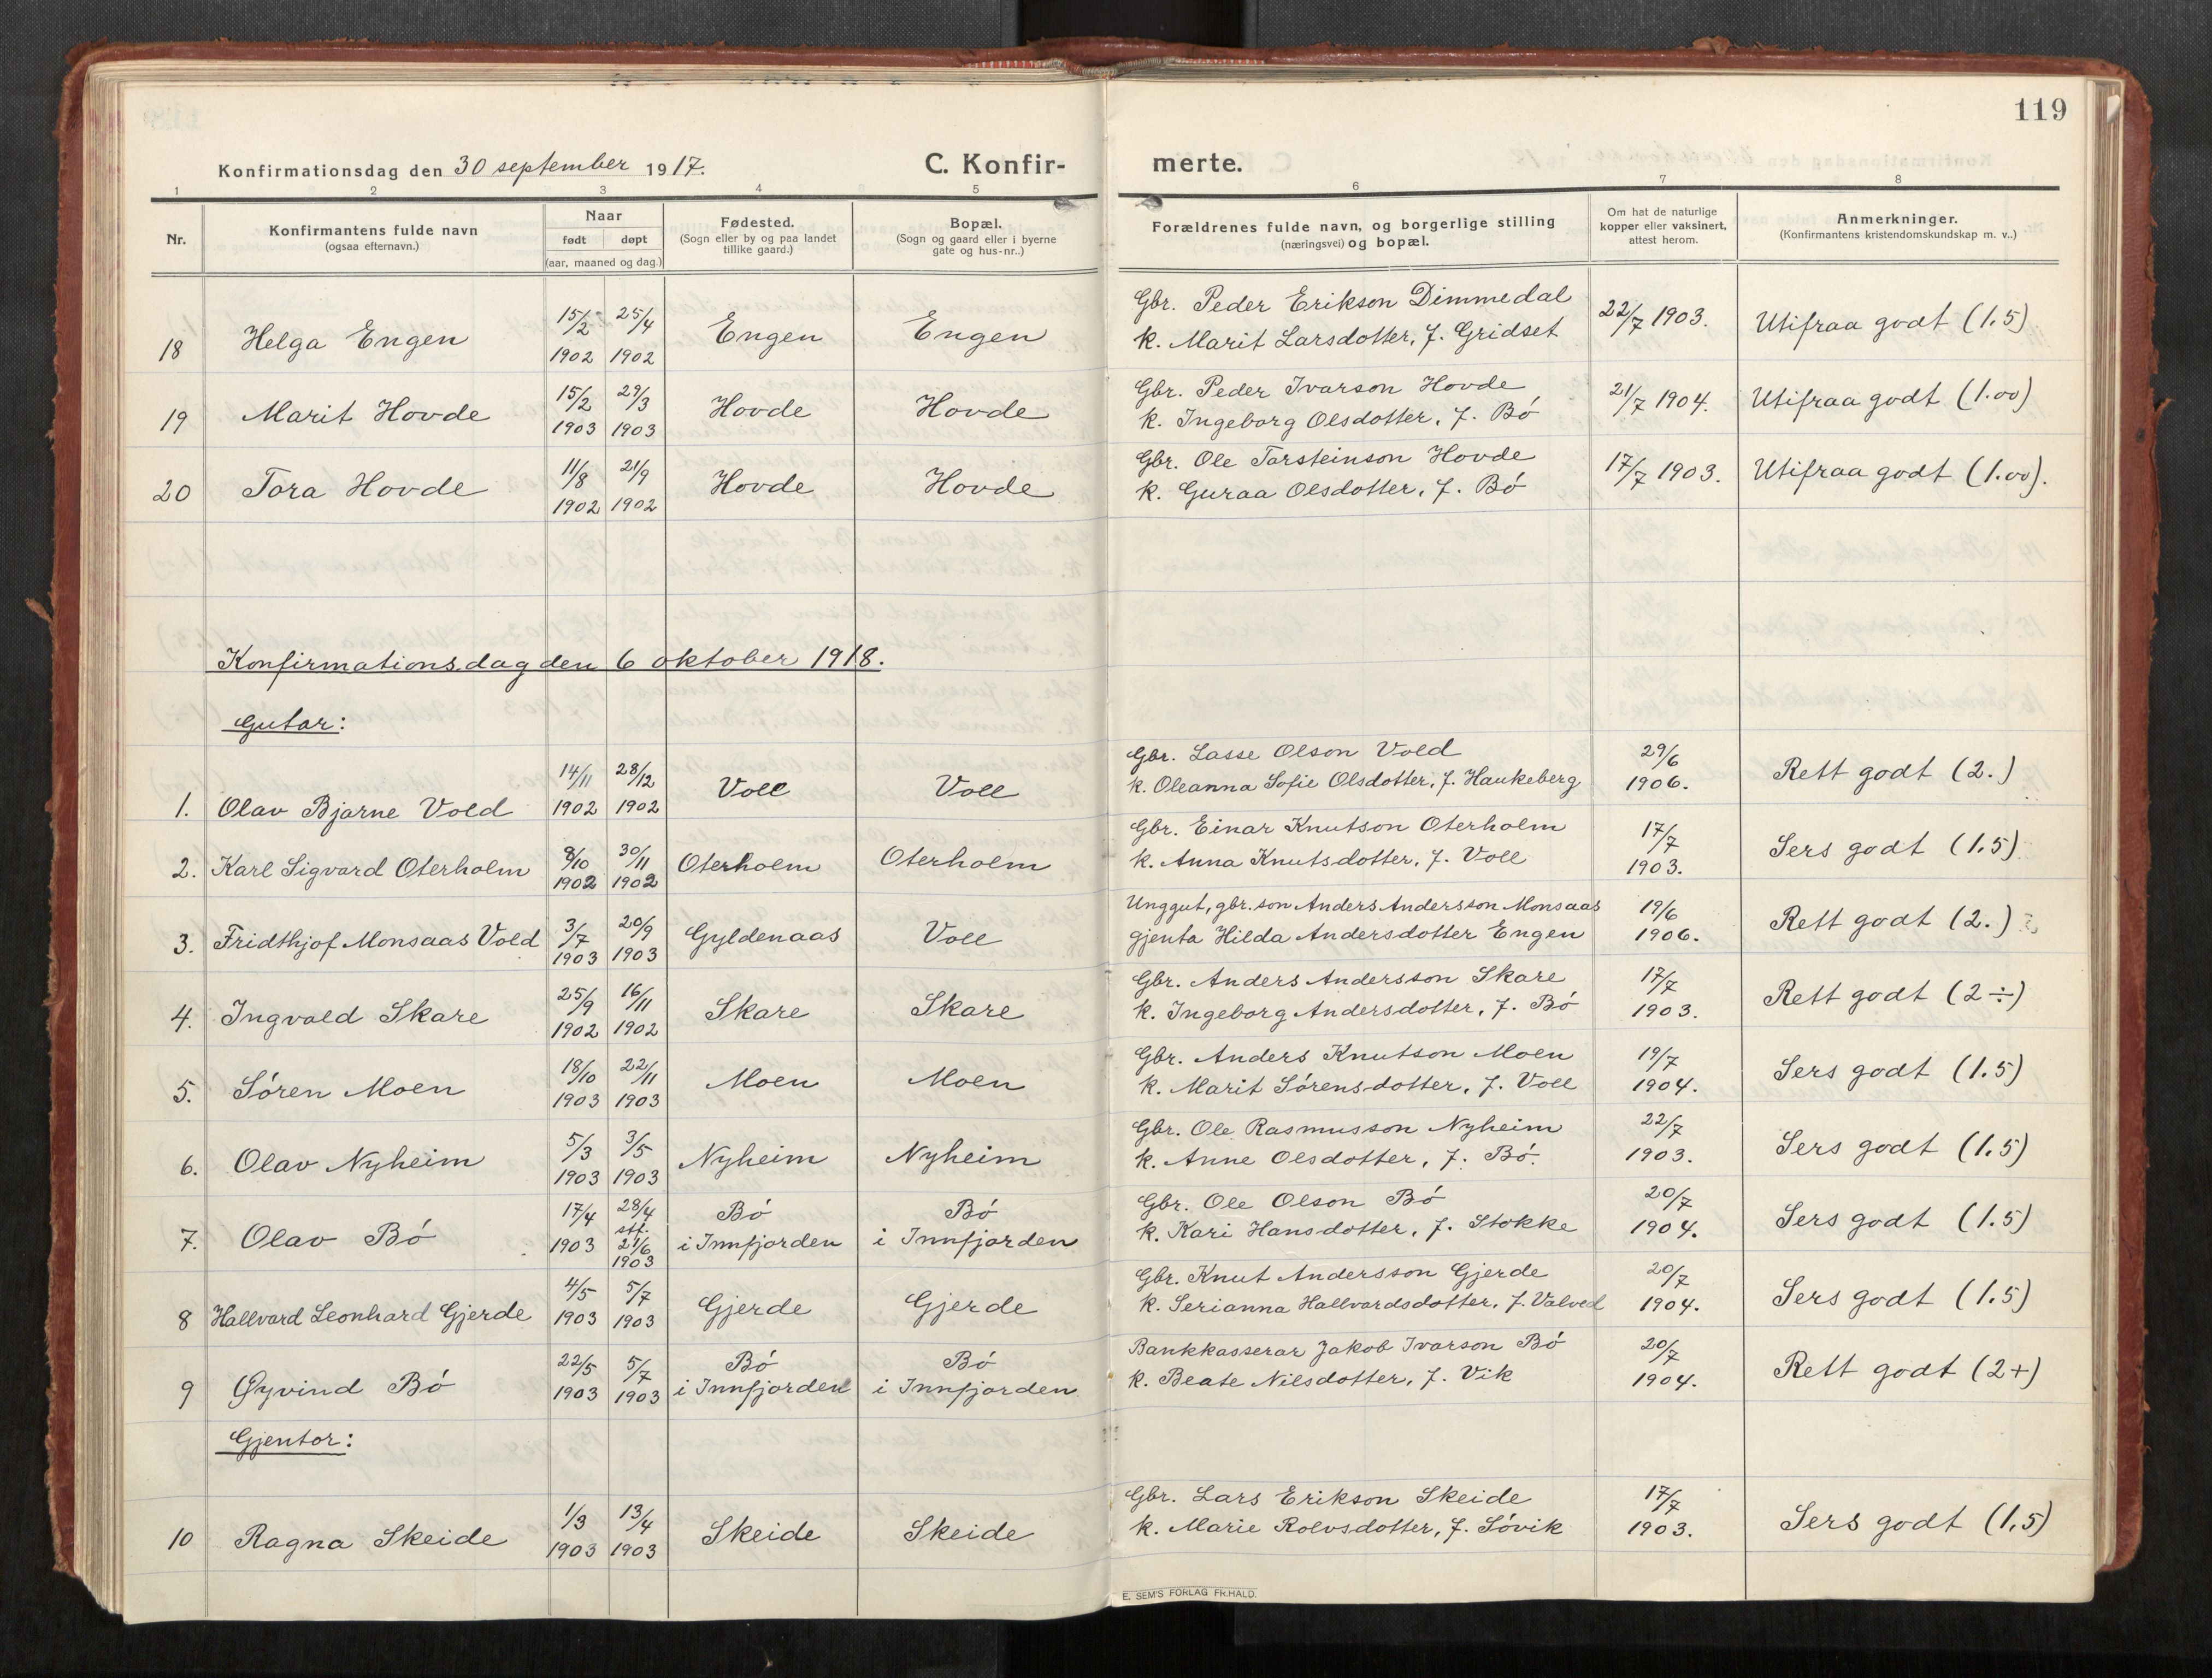 119
Konfirmationsdag den 30 september 1917. C. Konfir- merte.
1 2 3 4 5 6 7 8
Nr.
Konfirmantens fulde navn
(ogsaa efternavn.)
Naar
født døpt
(aar, maaned og dag.)
Fødested.
(Sogn eller by og paa landet
tillike gaard.)
Bopæl.
(Sogn og gaard eller i byerne
gate og hus-nr..)
Forældrenes fulde navn, og borgerlige stilling
(næringsvei) og bopæl.
Om hat de naturlige
kopper eller vaksinert,
attest herom.
Anmerkninger.
(Konfirmantens kristendomskundskap m. v..)
18 Helga Engen 15/2 1902 25/4 1902 Engen Engen
Gbr. Peder Erikson Dimmedal
k. Marit Larsdotter, f. Gridset
22/7 1903. Utifraa godt (1.5)
19 Marit Hovde 15/2 1903 29/3 1903 Hovde Hovde
Gbr. Peder Ivarson Hovde
k. Ingeborg Olsdotter, f. Bó
21/7 1904. Utifraa godt (1.00)
20 Tora Hovde 11/8 1902 21/9 1902 Hovde Hovde
Gbr. Ole Torsteinson Hovde
k. Guraa Olsdotter, f. Bó
17/7 1903. Utifraa godt (1.00).
Konfirmationsdag den 6 oktober 1918.
Gutar:
1. Olav Bjarne Vold 14/11 1902 28/12 1902 Voll Voll
Gbr. Lasse Olson Vold
k. Oleanna Sofie Olsdotter, f. Haukeberg
29/6 1906. Rett godt (2.)
2. Karl Sigvard Oterholm 8/10 1902 30/11 1902 Oterholm Oterholm
Gbr. Einar Knutson Oterholm
k. Anna Knutsdotter, f. Voll
17/7 1903. Sers godt (1.5)
3. Fridthjof Monsaas Vold 3/7 1903 20/9 1903 Gyldenaas Voll
Unggut, gbr.son Anders Andersson Monsaas
gjenta Hilda Andersdotter Engen
19/6 1906. Rett godt (2.)
4. Ingvald Skare 25/9 1902 16/11 1902 Skare Skare
Gbr. Anders Andersson Skare
k. Ingeborg Andersdotter, f. Bó
17/7 1903. Rett godt (2÷)
5. Sóren Moen 18/10 1903 22/11 1903 Moen Moen
Gbr. Anders Knutson Moen
k. Marit Sórensdotter, f. Voll
19/7 1904. Sers godt (1.5)
6. Olav Nyheim 5/3 1903 3/5 1903 Nyheim Nyheim
Gbr. Ole Rasmusson Nyheim
k. Anne Olsdotter, f. Bó.
22/7 1903. Sers godt (1.5)
7. Olav Bó 17/4 1903 28/4 stf. 21/6 1903 Bó i Innfjorden Bó i Innfjorden
Gbr. Ole Olson Bó
k. Kari Hansdotter, f. Stokke
20/7 1904. Sers godt (1.5)
8 Hallvard Leonhard Gjerde 4/5 1903 5/7 1903 Gjerde Gjerde
Gbr. Knut Andersson Gjerde
k. Serianna Hallvardsdotter, f. Valved
20/7 1904. Sers godt (1.5)
9 Øyvind Bó 22/5 1903 5/7 1903 Bó i Innfjorden Bó i Innfjorden
Bankkasserar Jakob Ivarson Bó
k. Beate Nilsdotter, f. Vik
20/7 1904. Rett godt (2+)
Gjentor:
10 Ragna Skeide 1/3 1903 13/4 1903 Skeide Skeide
Gbr. Lars Erikson Skeide
k. Marie Rolvsdotter, f. Sóvik
17/7 1903. Sers godt (1,5)
E. SEM'S FORLAG FR.HALD.